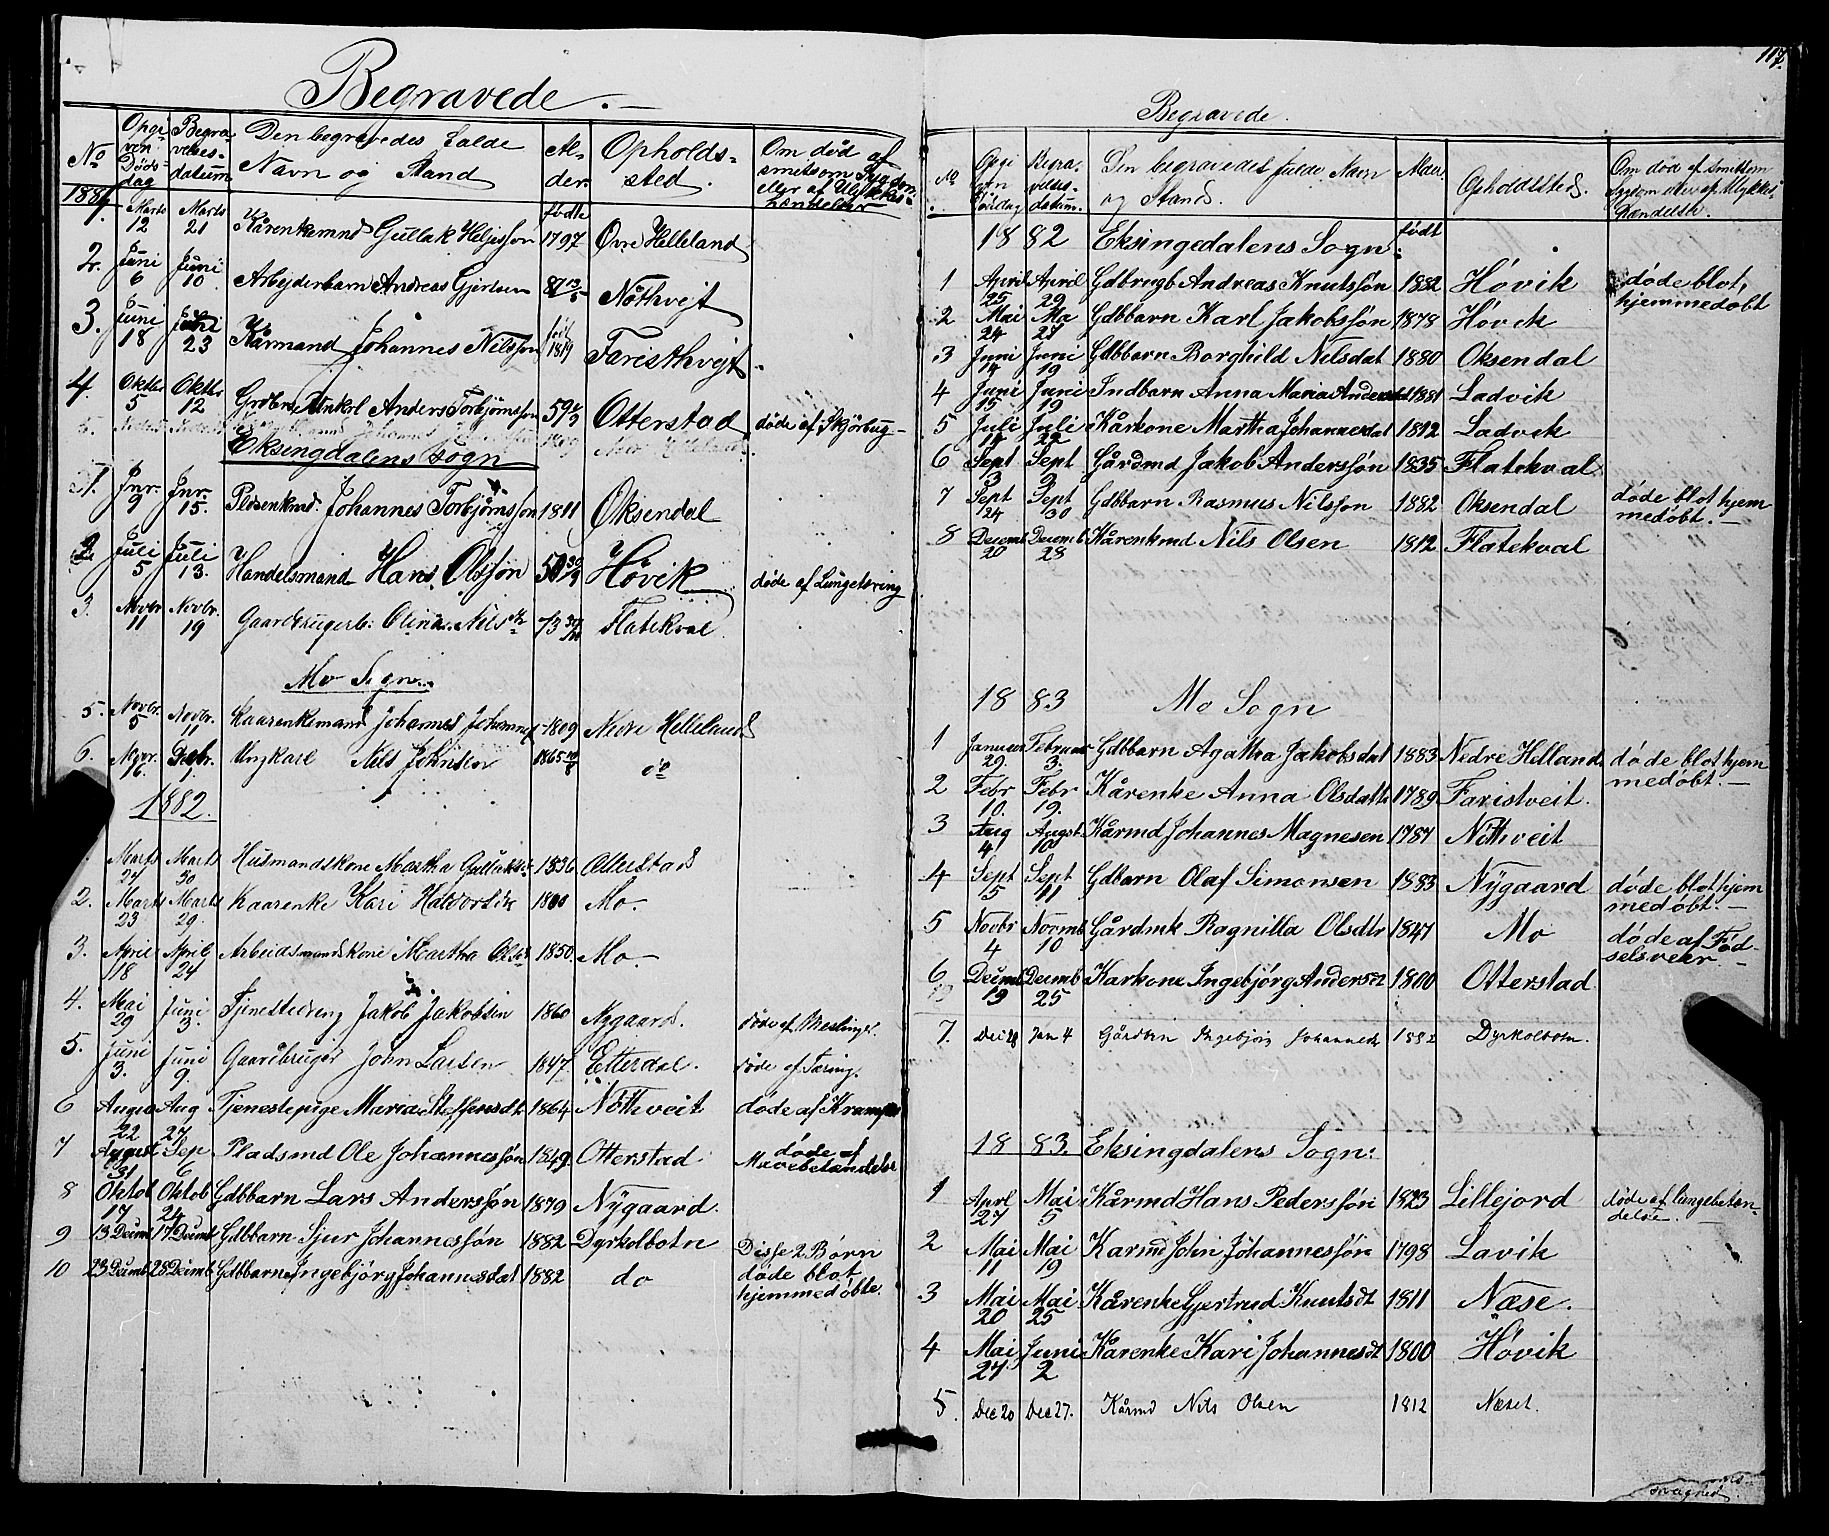 Begravede.
No
Opgi-
ven
Døds
dag
Begra-
velses-
datum
Den begravedes fulde
Navn og Stand
Al-
der.
Opholds-
sted.
Om død af
smitsom Sygdom
eller af Ulykkes-
hændelser
1881
født
1. Marts 12 Marts 21 Kårenkemnd Gullak Heljessøn 1797 Øvre Helleland
2. Juni 6 Juni 10 Arbejderbarn Andreas Gjertsen Nøthvejt
3. Juni 18 Juni 23 Kårmand Johannes Nilssøn født 1819 Faresthvejt
4. Oktbr 5 Oktbr 12 Ungkrl Anders Torbjørnssøn Otterstad døde af Skjørbug
Eksingdalens sogn
1. Jnr. 9 Jnr. 15. Pladsenkmd. Johannes Torbjørnssøn 1811 Oksendal
2. Juli 5 Juli 13. Handelsmand Hans Olssøn Høvik døde af Lungetæring
3. Novbr 11 Novbr. 19 Olina Nilsdtr Flatekval
Mo Sogn
5. Novbr. 5 Novbr. 11 Kaarenkemand Johannes Johannes 1809 Nedre Helleland
6. Novr. 16. Debr. 1. Ungkarl Nils Johnsen 1865 do
1882.
Marts 24 Marts 30 Husmandskone Martha Gullaksd 1836 Otterstad
2. Marts 23 Marts 29. Kaarenke Kari Halvorsdtr 1800 Mo.
3. April 18 April 24 Arbeidsmandskone Martha Olsd 1850 Mo
4. Mai 29 Juni 3. Tjenestedreng Jakob Jakobsen 1860 Nygaard. døde af Meslinger
5. Juni 3. Juni 9. Gaardbruger John Larsen 1847 Etterdal. døde af Tæring.
6 August 22 Aug 27 Tjenestepige Maria Steffensdt 1864 Nøthveit døde af Krampe
7 August 31 Sep 6 Pladsmd Ole Johannessøn 1849 Otterstad døde af
Mavebetændelse
8 Oktob 17 Oktob 24 Gdbbarn Lars Anderssøn 1879 Nygaard.
9 13 Decmb 17 Decmb Gdbbarn Sjur Johannessøn 1882 Dyrkolbotn Disse 2 Børn
10 23 Decmb 28 Decmb Gdbbarn Ingebjørg Johannesdat 1882 do døde blot
hjemmedøbte.
117.
Begravede.
No
Opgi
ven
Dødsdag
Begra-
velses-
datum.
Den begravedes fulde Navn
og Stand.
Alder
Opholdssted.
Om døde af smitsom
Sygdom eller af Ulykkes-
hændelse.
1882 Eksingedalens Sogn. født
1 April 25 April 29 Gdbrugb Andreas Knutssøn 1882 Høvik døde blot,
hjemmedøbt
2 Mai 24 Ma 27 Gdbbarn Karl Jakobssøn 1878 Høvik
3 Juni 14 Juni 19 Gdbbarn Borghild Nilsdat 1880 Oksendal
4 Juni 15 Juni 19 Indbarn Anna Maria Andersd 1881 Ladvik
5 Juli 14 Juli 22 Kårkone Martha Johannesdat 1812 Ladvik
6 Sept 3 Sept 9 Gårdmd Jakob Anderssøn 1835 Flatekval
7 Sept 24 Sept 30 Gdbbarn Rasmus Nilssøn 1882 Oksendal døde blot hjem
medøbt.
8 Decemb 20 Decemb 28 Kårenkmd Nils Olsen 1812 Flatekval
1883 Mo Sogn
1 Januar 29. Februar 3. Gdbbarn Agatha Jakobsdat 1883 Nedre Helland døde blot hjem
medøbt.
2 Febr 10. Febr 19. Kårenke Anna Olsdattr 1789 Faristveit.
3 Aug 4 Augst 10 Kårmd Johannes Magnesen 1787 Nøthveit
4 Sept 5 Sept 11 Gdbarn Olaf Simonsen 1883 Nygaard døde blot hjem
medøbt.
5 Novbr 4 Novmb 10 Gårdmk Ragnilla Olsdtr 1847 Mo døde af Fød-
selsveer
6 Decmb 19 Decmb 25 Karkone Ingebjørg Andersdt 1800 Otterstad
7. Dec 28 Jan 4 Gårdbrn Ingebjørg Johannesdt 1882 Dyrkolbotn.
1883. Eksingdalens Sogn.
1 Aprl 27 Mai 5 Kårmd Hans Pederssøn 1823 Lillejord døde af Lungebetæn-
delse.
2 Mai 11 Mai 19 Karmd John Johannessøn 1798 Lavik
3 Mai 20 Mai 25 Kårenke Gjertrud Knutsdt 1811 Næse.
4 Mai 27 Juni 2 Kårenke Kari Johannesdt 1800 Høvik
5. Dec 20 Dec 27. Kårmd Nils Olsen 1812 Næset.